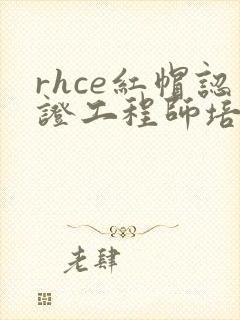 rhce紅帽認
證工程師培
老肆